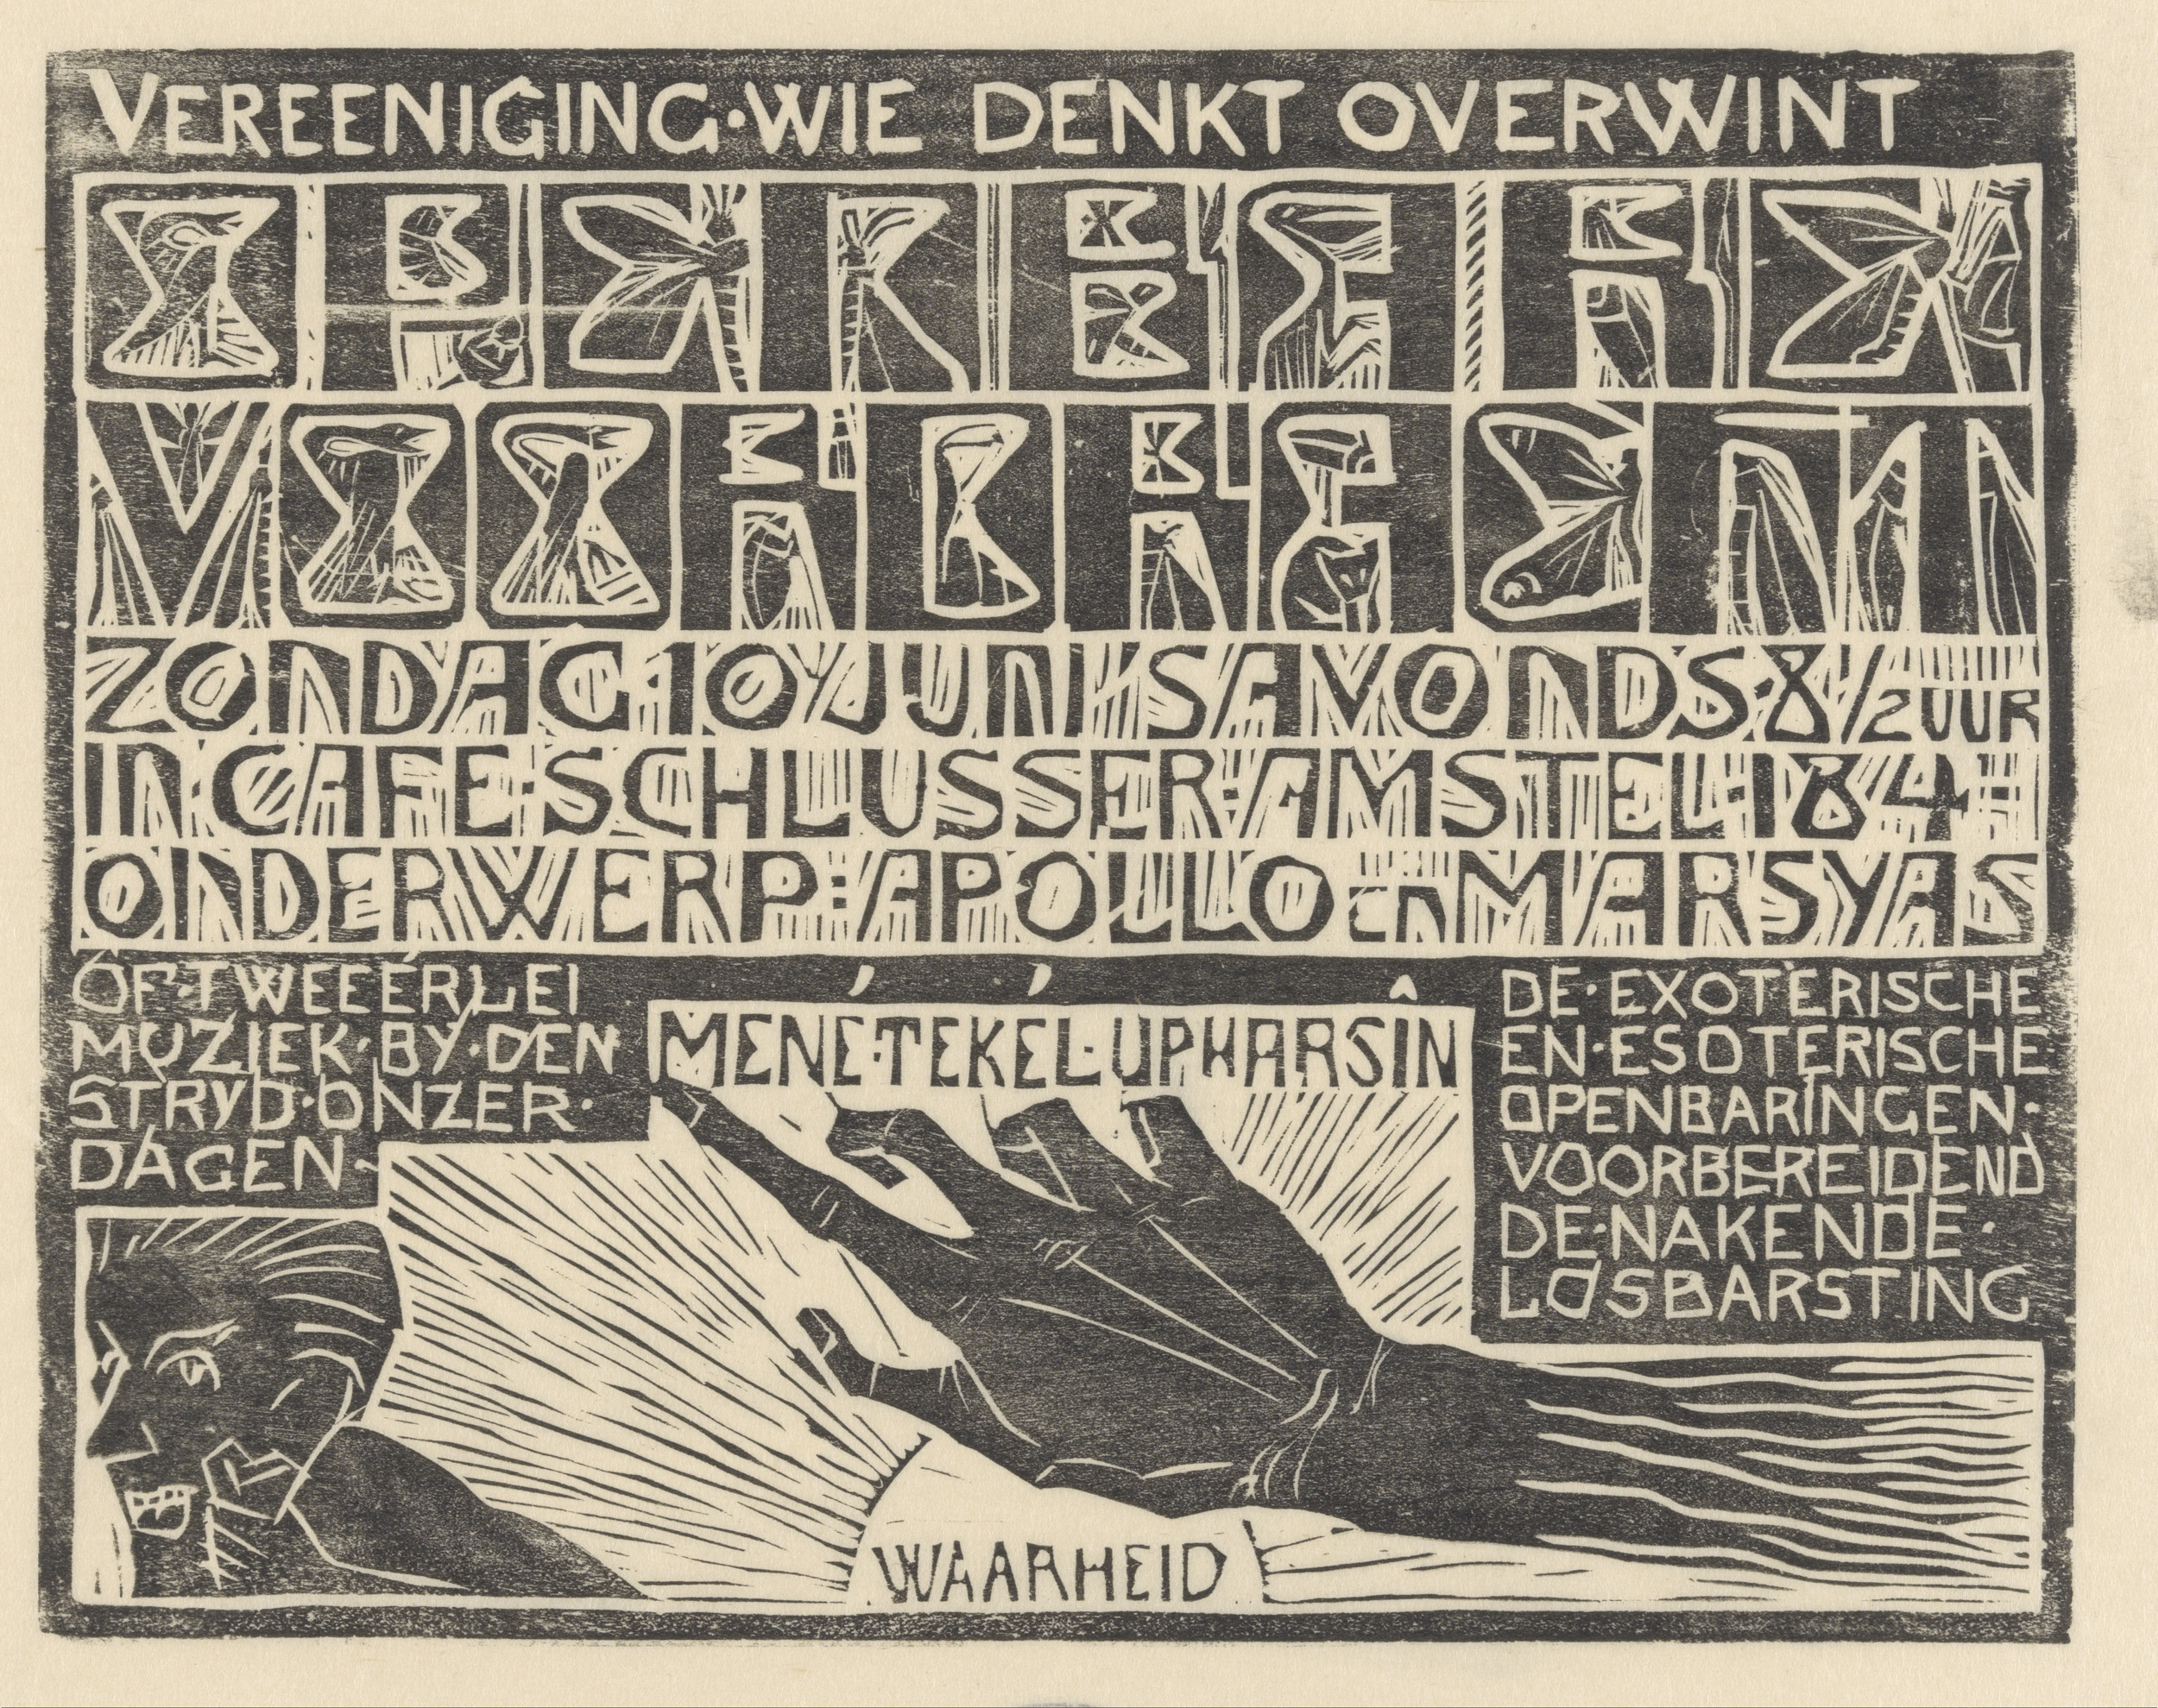 VEREENIGING·WIE DENKT OVERWINT
OPENBARE
VOORDRACHT
ZONDAG·10·JUNI'SAVONDS·8 1/2 UUR
IN·CAFE·SCHLUSSER·AMSTEL·184
ONDERWERP:APOLLO EN MARSYAS
OF·TWEEËRLEI
MUZIEK·BY·DEN
STRYD·ONZER·
DAGEN·
MENÉ·TEKÉL·UPHARSÎN
DE·EXOTERISCHE
EN·ESOTERISCHE
OPENBARINGEN·
VOORBEREIDEND
DE·NAKENDE·
LOSBARSTING
WAARHEID